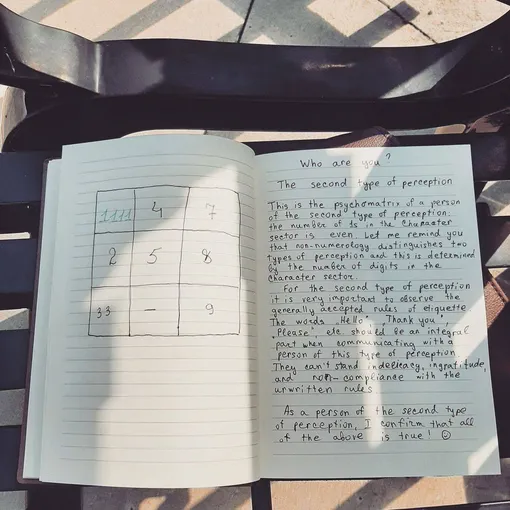 1111 4 7
2 5 8
33 – 9
Who are you?
The second type of perception
This is the psychomatrix of a person
of the second type of perception:
the number of 1s in the Character
sector is even. Let me remind you
that non-numerology distinguishes two
types of perception and this is determined
by the number of digits in the
character sector.
For the second type of perception
it is very important to observe the
generally accepted rules of etiquette
The words „Hello", „Thank you",
„Please", etc. should be an integral
part when communicating with a
person of this type of perception.
They can't stand indelicacy, ingratitude,
and non-compliance with the
unwritten rules.
As a person of the second type
of perception, I confirm that all
of the above is true! ☺